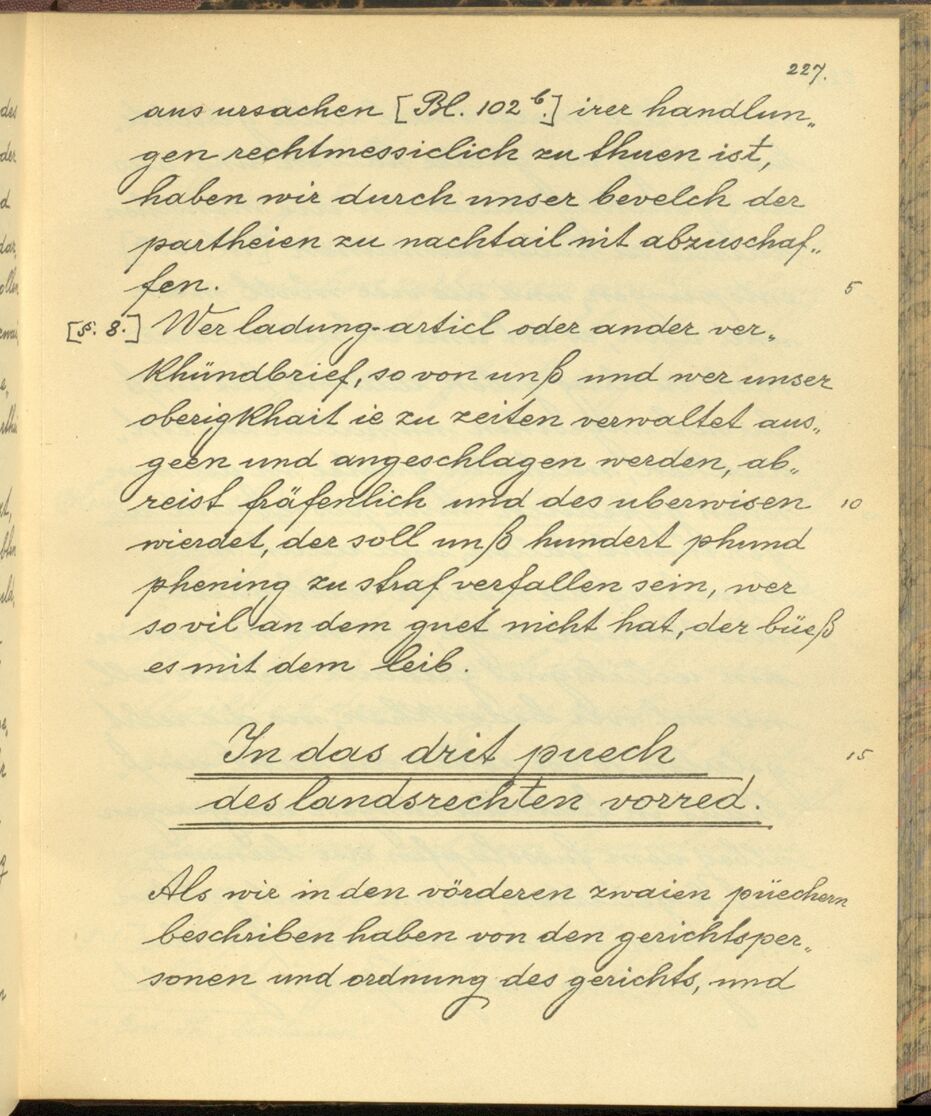 227.
aus ursachen [Bl. 102 b.] irer handlun„
gen rechtmessiclich zu thuen ist,
haben wir durch unser bevelch der
partheien zu nachtail nit abzuschaf„
fen.
5
[§. 8.] Wer ladung-articl oder ander ver„
khündbrief, so von unß und wer unser
oberigkhait ie zu zeiten verwaltet aus„
geen und angeschlagen werden, ab„
reist fräfenlich und des uberwisen 10
wierdet, der soll unß hundert phund
phening zu straf verfallen sein, wer
sovil an dem guet nicht hat, der büeß
es mit dem leib.
In das drit puech 15
des landsrechten vorred.
Als wir in den vörderen zwaien püechern
beschriben haben von den gerichtsper„
sonen und ordnung des gerichts, und